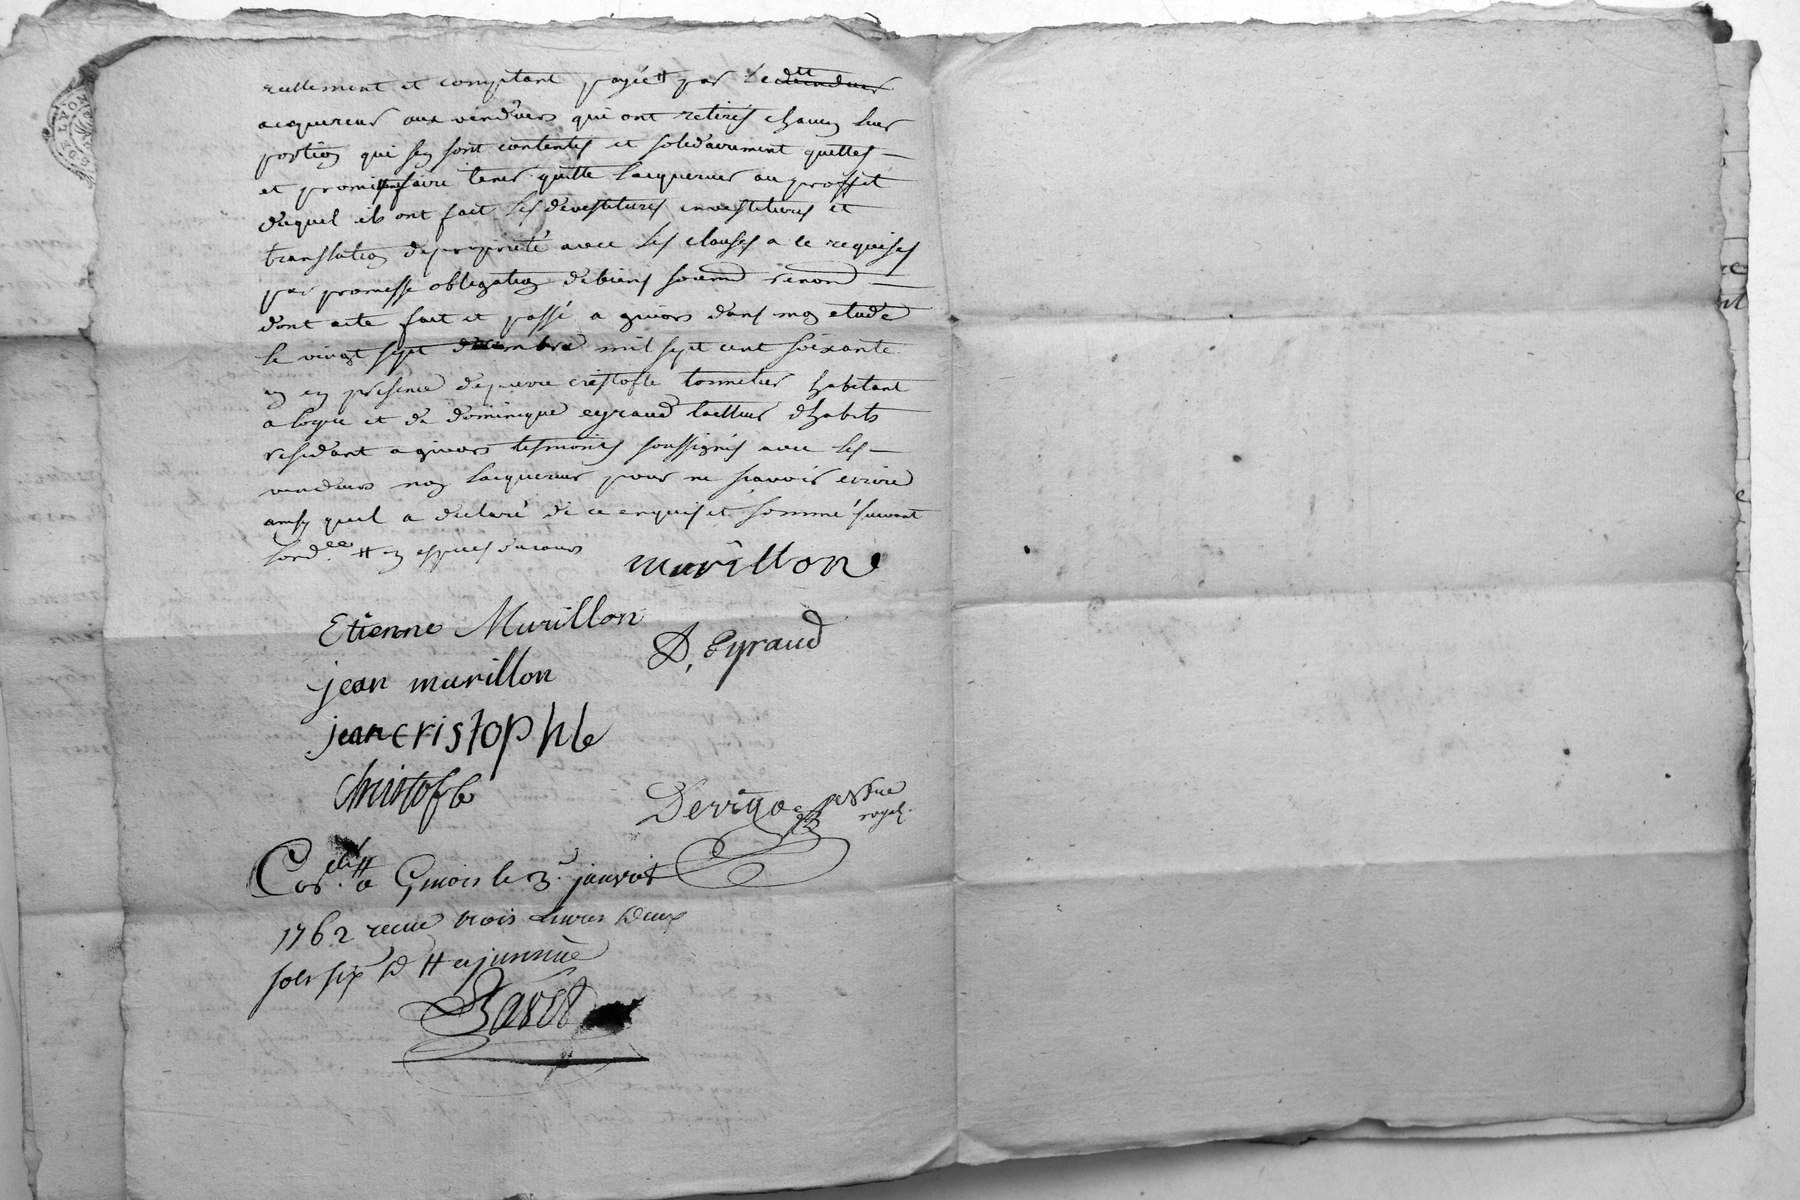 reellement et comptant payée par ledtt vendeur
acquereur aux vendeurs qui ont retirés chacun leur
portion qui sen sont contentés et solidairement quittes
et promis faire tenir quitte lacquereur au proffit
duquel ils ont fait les devestitures investitures et
translation de proprieté avec les clauses a ce requises
par promesse obligation de biens soumd renond
dont acte fait et passé a givors dans mon etude
le vingt sept decembre mil sept cent soixante
un en presence de pierre cristofle tonnelier habitant
a loyre et de dominique eyraud tailleur dhabits
residant a givors tesmoins soussignés avec les
vendeurs non lacquereur pour ne scavoir ecrire
ainsy quil a declaré de ce enquis et sommé suivant
lordce en especes ducours
murillon
Etienne Murillon
D, Eyraud
jean murillon
jean cristophle
christofle
Not.re
royal
Corlé a Givors le 3. janvier
1762 receu trois Livres Deux
sols six d